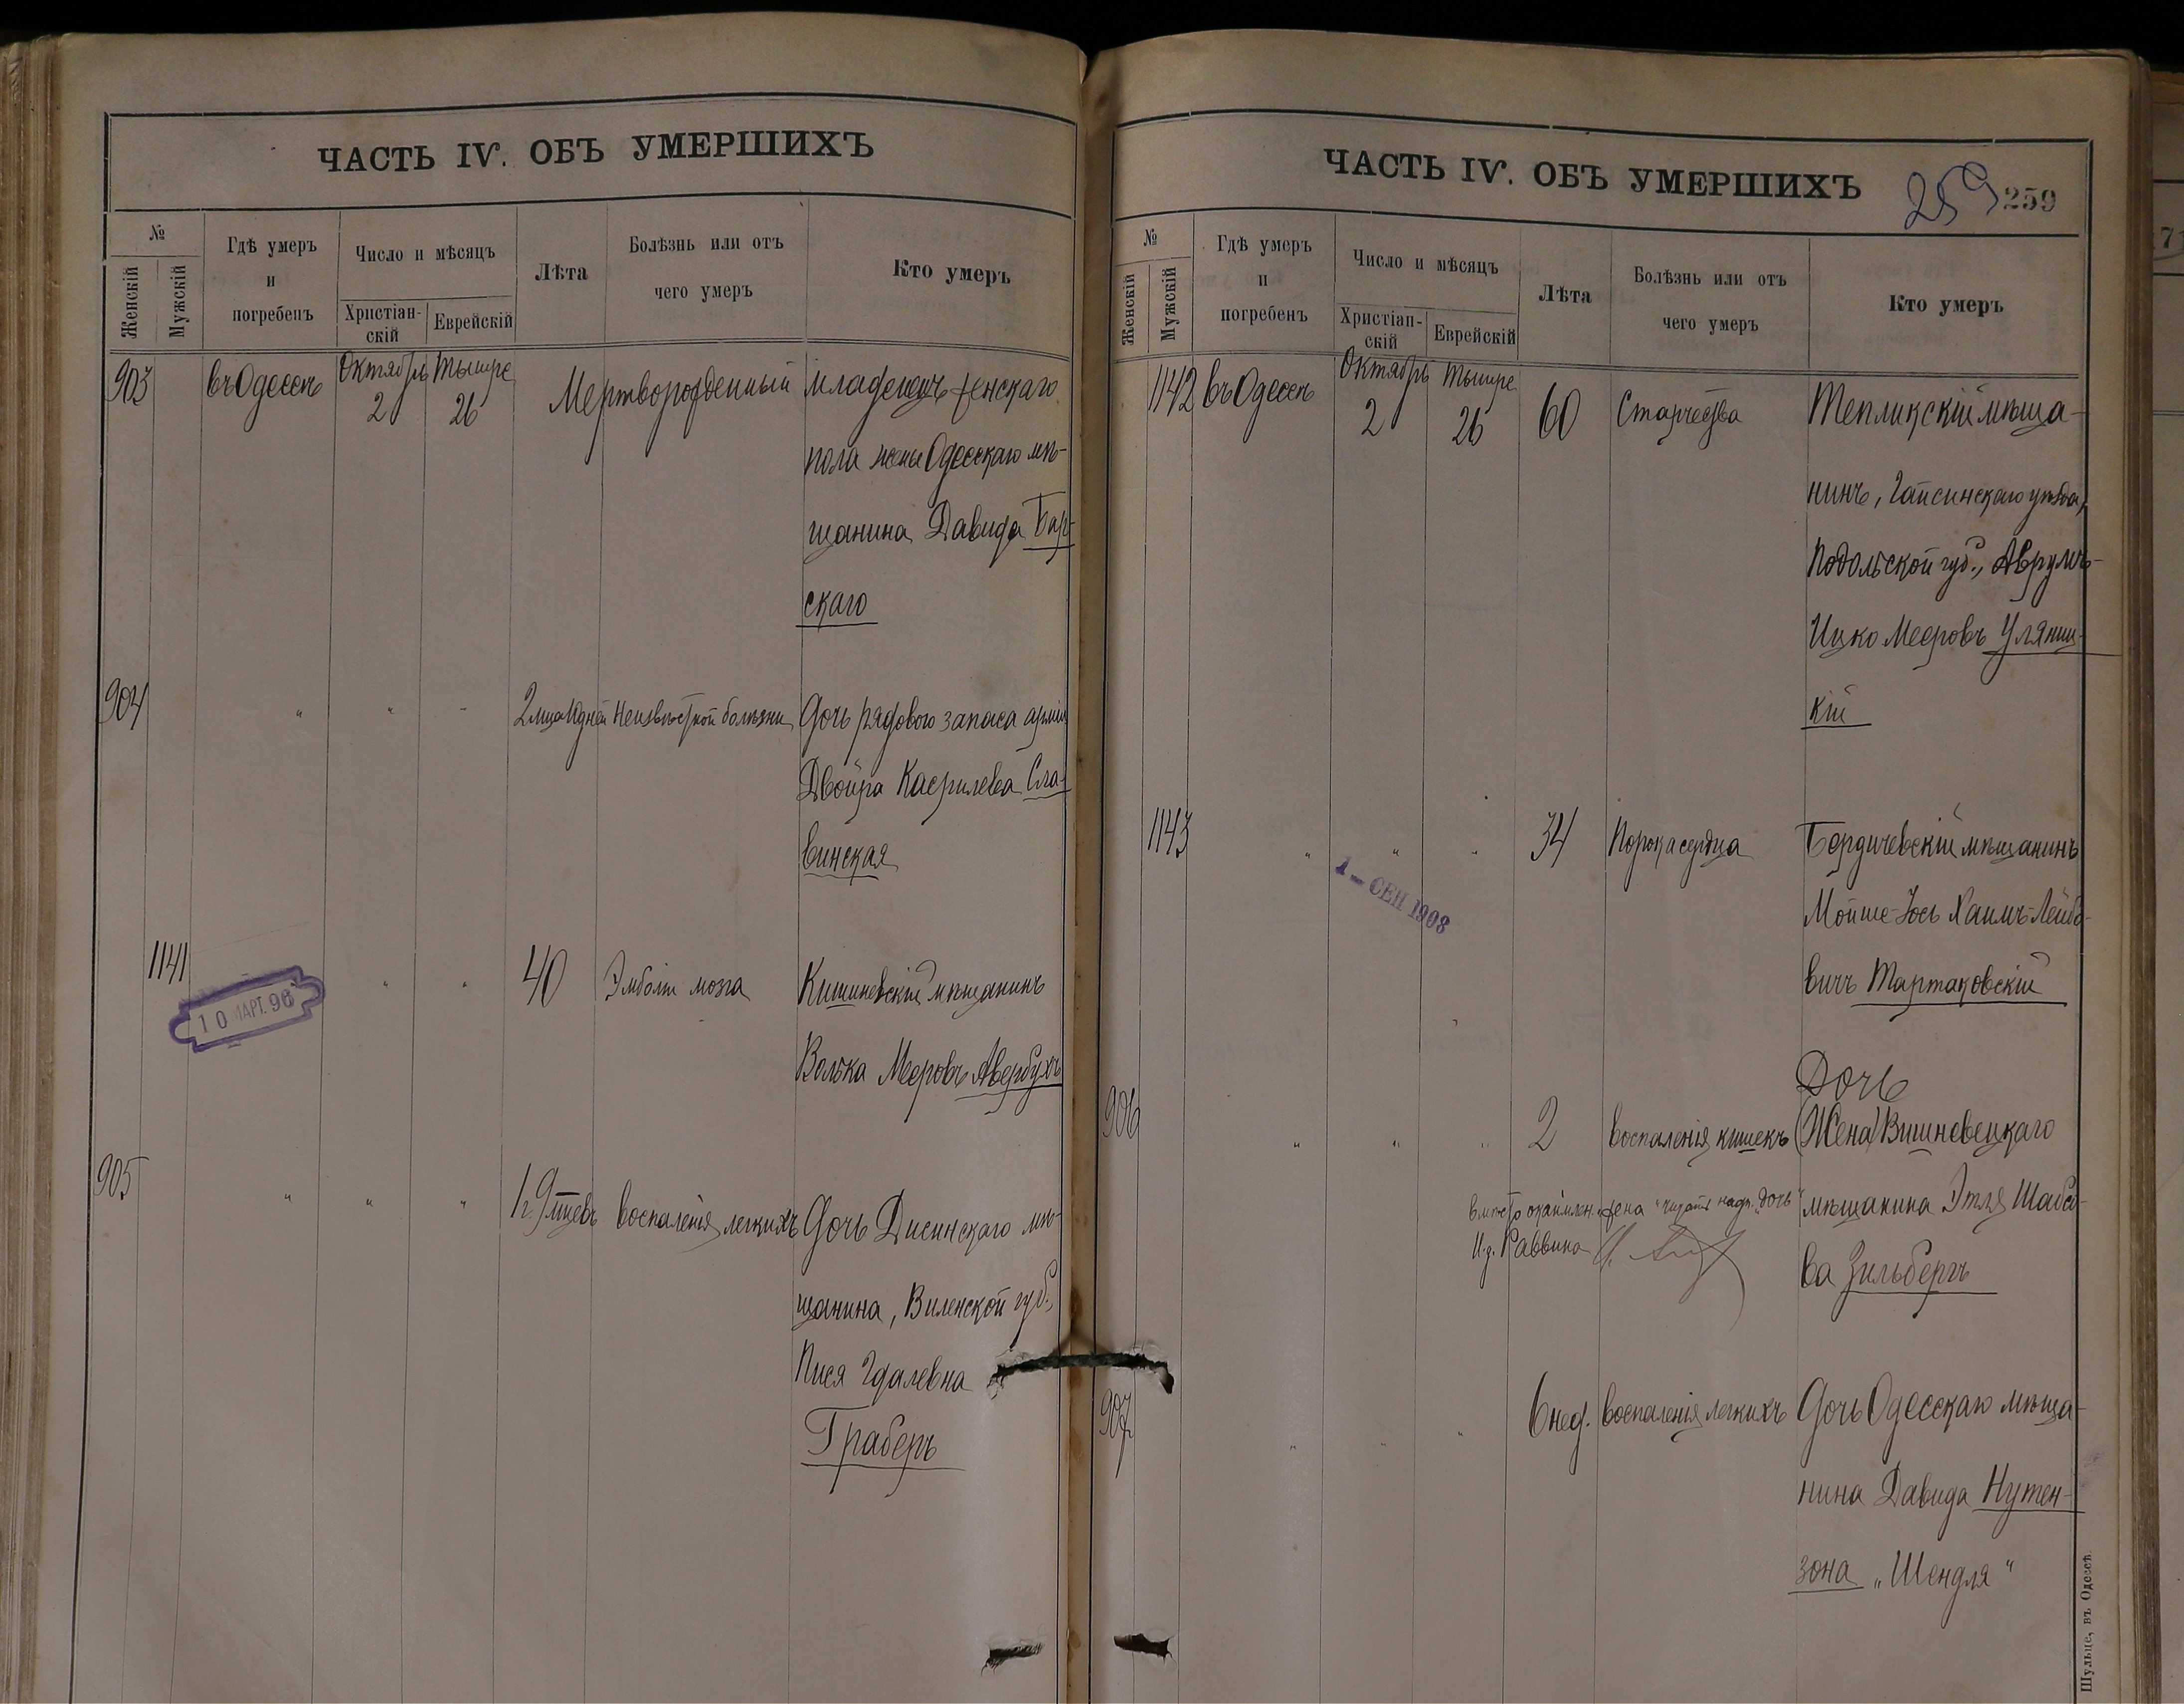 ЧАСТЬ IV. ОБЪ УМЕРШИХЪ
№
Женскій
Мужскій
Гдѣ умеръ
и
погребенъ
Число и мѣсяцъ
Христіан-
скій
Еврейскій
Лѣта
Болѣзнь или отъ
чего умеръ
Кто умеръ
903 въ Одессѣ Октябрь 2 Тышре 26 Мертворожденный младенецъ женскаго
пола жены Одесскаго мѣ-
щанина Давида Бар-
скаго
904 " " " 2 мца 10 дней Неизвѣстной болѣзни Дочь рядового запаса арміи
Двойра Касрилева Сла-
винская
1141 " " 40 Эмболіи мозга Кишиневскій мѣщанинъ
Волька Меровъ Авербухъ
10 МАРТ. 96
905 " " " 1 г. 9 мцевъ воспаленія легкихъ Дочь Дисинскаго мѣ-
щанина, Виленской губ.,
Пися Гдалевна
Граберъ
ЧАСТЬ IV. ОБЪ УМЕРШИХЪ
259 259
№
Женскій
Мужскій
Гдѣ умеръ
и
погребенъ
Число и мѣсяцъ
Христіан-
скій
Еврейскій
Лѣта
Болѣзнь или отъ
чего умеръ
Кто умеръ
1142 въ Одессѣ Октябрь 2 Тышре 26 60 Старчества Тепликскій мѣща-
нинъ, Гайсинскаго уѣзда,
Подольской губ., Аврумъ-
Ицко Меровъ Уляниц-
кій
1143 " " " 34 Порока сердца Бердичевскій мѣщанинъ
Мойше-Іось Хаимъ-Лейбо-
вичъ Тартаковскій
1 - СЕН 1908
Дочь
906 " " " 2 воспаленія кишекъ (Жена) Вишневецкаго
мѣщанина Этля Шабсо-
ва Зильбергъ
вмѣсто "жена" читать надп. "дочь"
И.д. Раввина
907 " " " 6 нед. воспаленія легкихъ Дочь Одесскаго мѣща-
нина Давида Нутен-
зона „Шендля“
Шульце, въ Одессѣ.